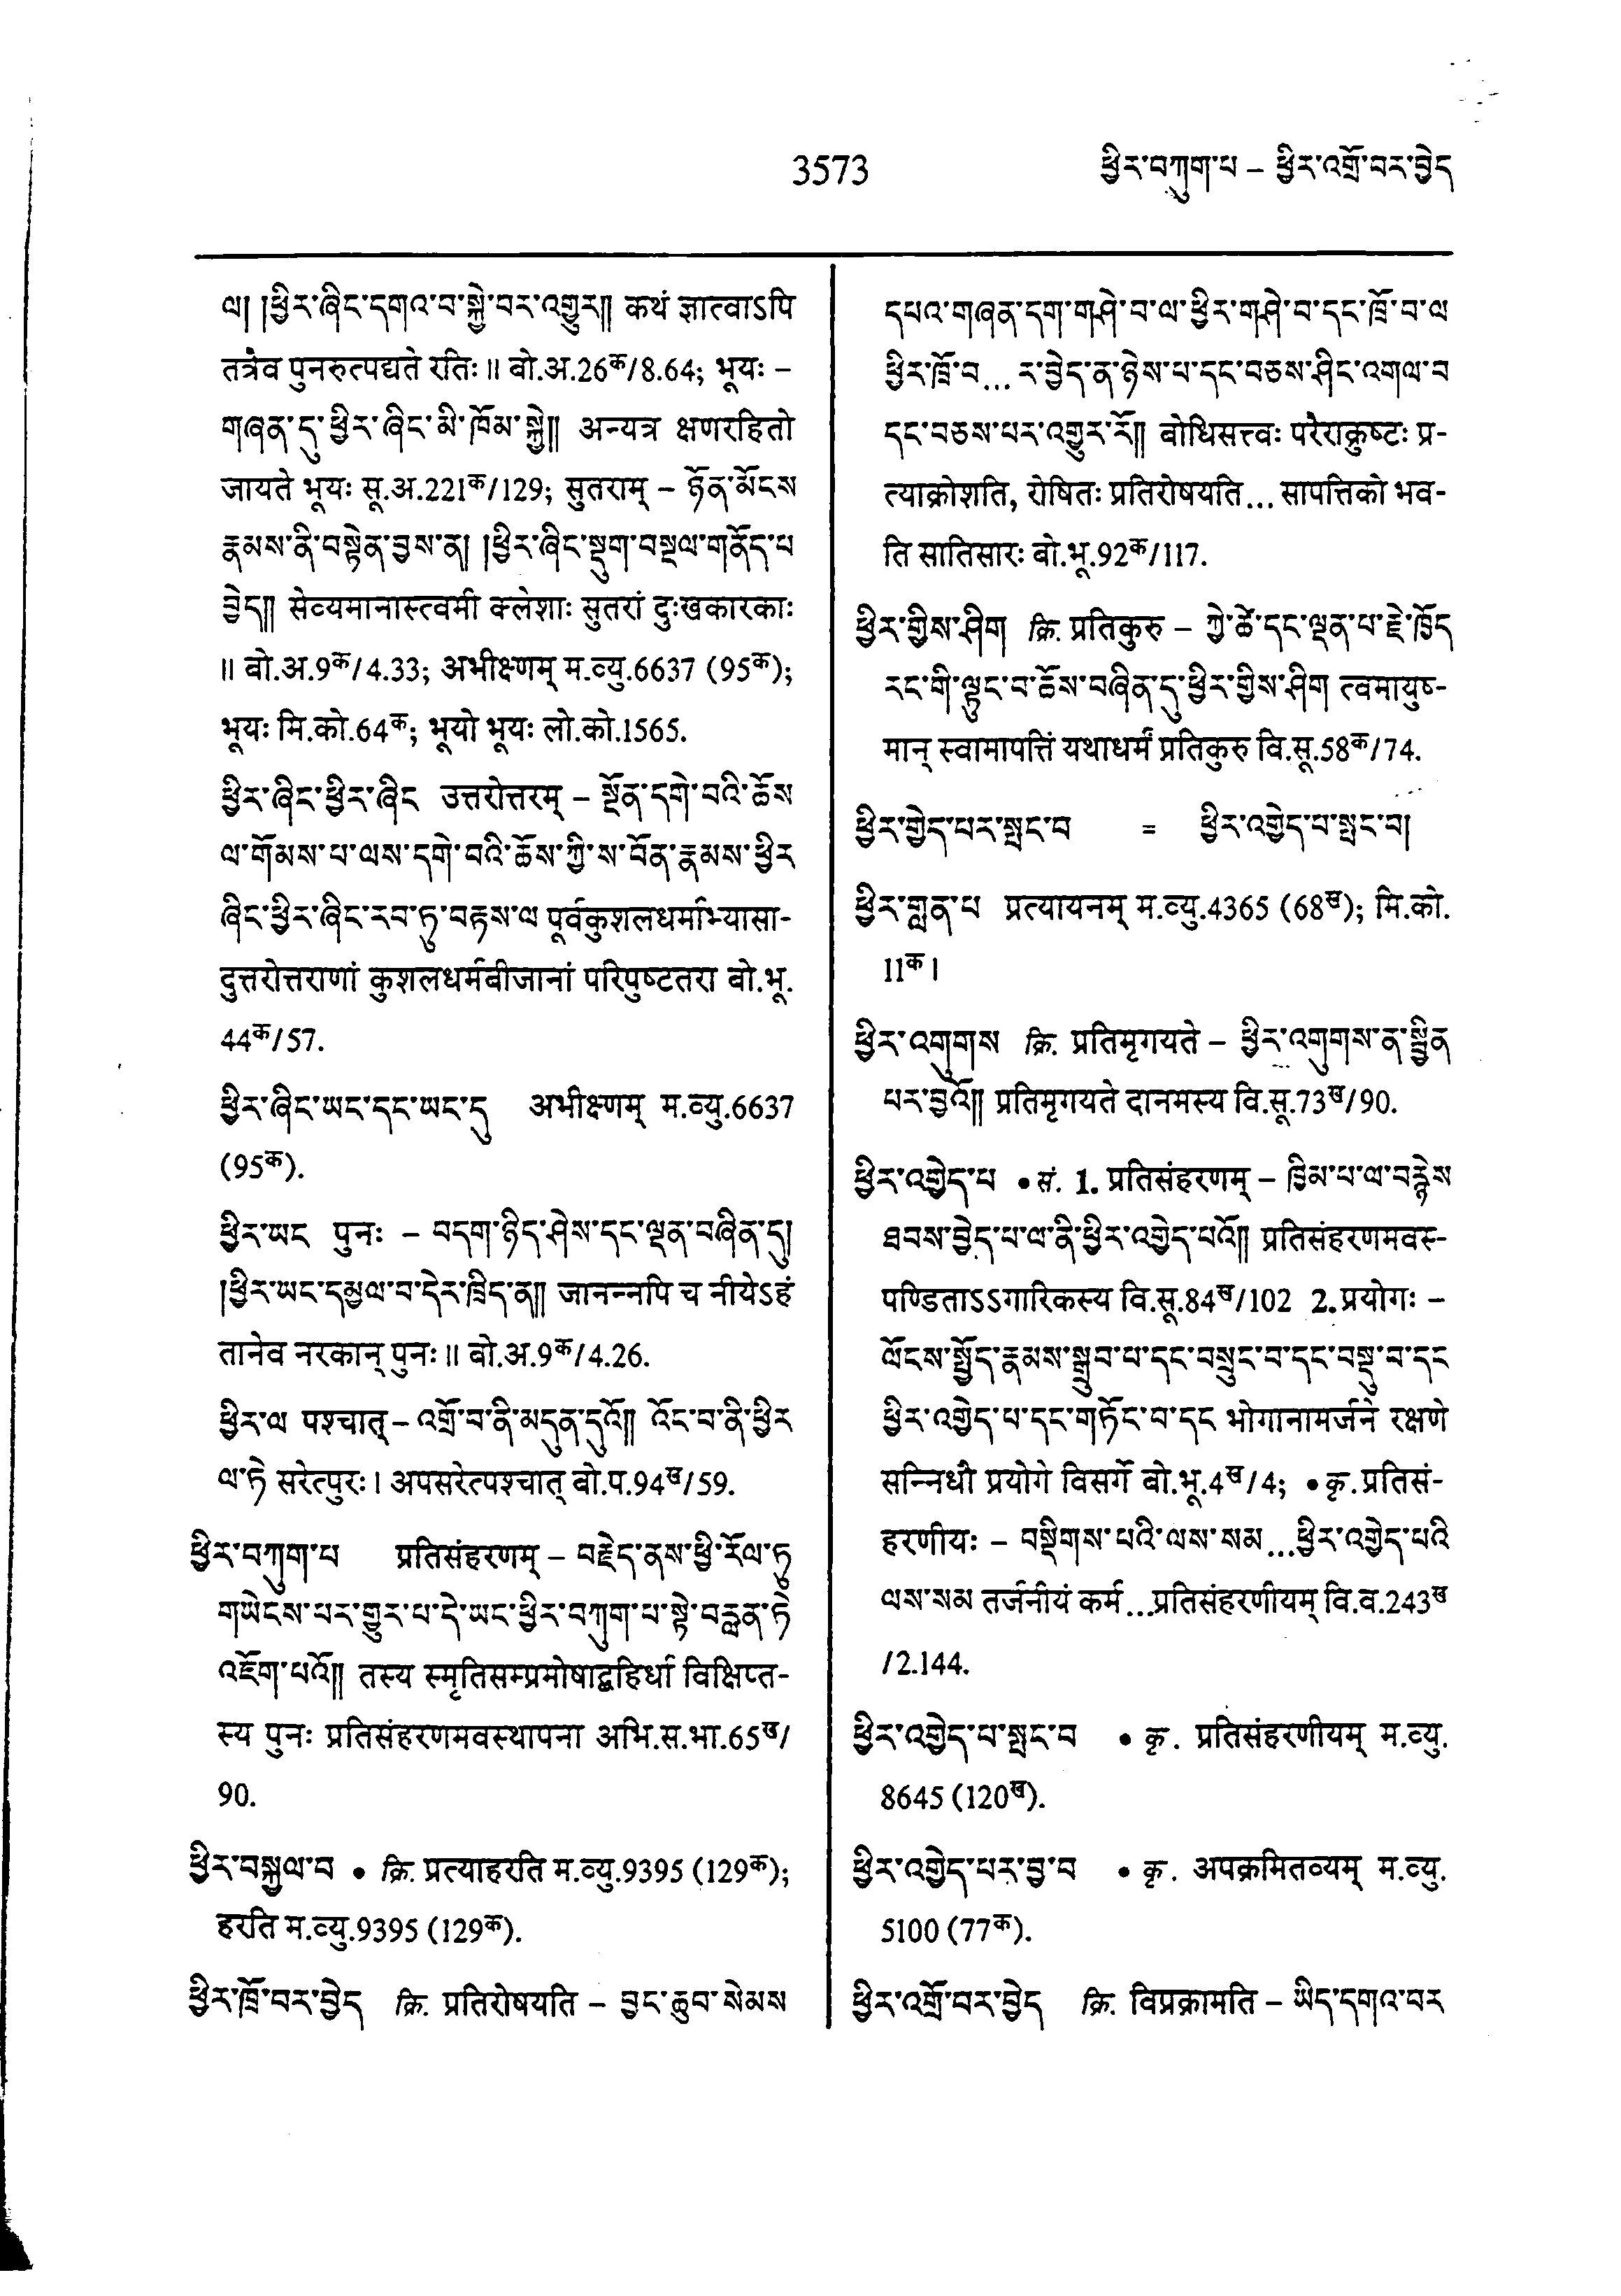 3573
ཕྱིར་བཀུག་པ – ཕྱིར་འགྲོ་བར་བྱེད
ལ། །ཕྱིར་ཞིང་དགའ་བ་སྐྱེ་བར་འགྱུར།། कथं ज्ञात्वाऽपि
तत्रैव पुनरुत्पद्यते रतिः॥ बो.अ.26क/8.64; भूयः –
གཞན་དུ་ཕྱིར་ཞིང་མི་ཁོམ་སྐྱེ།། अन्यत्र क्षणरहितो
जायते भूयः सू.अ.221क/129; सुतराम् – ཉོན་མོངས
རྣམས་ནི་བསྟེན་བྱས་ན། །ཕྱིར་ཞིང་སྡུག་བསྔལ་གནོད་པ
བྱེད།། सेव्यमानास्त्वमी क्लेशाः सुतरां दुःखकारकाः
॥ बो.अ.9क/4.33; अभीक्ष्णम् म.व्यु.6637 (95क);
भूयः मि.को.64क; भूयो भूयः लो.को.1565.
ཕྱིར་ཞིང་ཕྱིར་ཞིང उत्तरोत्तरम् – སྔོན་དགེ་བའི་ཆོས
ལ་གོམས་པ་ལས་དགེ་བའི་ཆོས་ཀྱི་ས་བོན་རྣམས་ཕྱིར
ཞིང་ཕྱིར་ཞིང་རབ་ཏུ་བརྟས་ལ पूर्वकुशलधर्माभ्यासा-
दुत्तरोत्तराणां कुशलधर्मबीजानां परिपुष्टतरा बो.भू.
44क/57.
ཕྱིར་ཞིང་ཡང་དང་ཡང་དུ अभीक्ष्णम् म.व्यु.6637
(95क).
ཕྱིར་ཡང पुनः – བདག་ཉིད་ཤེས་དང་ལྡན་བཞིན་དུ།
།ཕྱིར་ཡང་དམྱལ་བ་དེར་ཁྲིད་ན།། जानन्नपि च नीयेऽहं
तानेव नरकान् पुनः॥ बो.अ.9क/4.26.
ཕྱིར་ལ पश्चात् – འགྲོ་བ་ནི་མདུན་དུའོ།། འོང་བ་ནི་ཕྱིར
ལ་ཏེ सरेत्पुरः। अपसरेत्पश्चात् बो.प.94ख/59.
ཕྱིར་བཀུག་པ प्रतिसंहरणम् – བརྗེད་ནས་ཕྱི་རོལ་ཏུ
གཡེངས་པར་གྱུར་པ་དེ་ཡང་ཕྱིར་བཀུག་པ་སྟེ་བརླན་ཏེ
འཇོག་པའོ།། तस्य स्मृतिसम्प्रमोषाद्बहिर्धा विक्षिप्त-
स्य पुनः प्रतिसंहरणमवस्थापना अभि.स.भा.65ख/
90.
ཕྱིར་བསྐྱལ་བ • क्रि. प्रत्याहरति म.व्यु.9395 (129क);
हरति म.व्यु.9395 (129क).
ཕྱིར་ཁྲོ་བར་བྱེད क्रि. प्रतिरोषयति – བྱང་ཆུབ་སེམས
དཔའ་གཞན་དག་གཤེ་བ་ལ་ཕྱིར་གཤེ་བ་དང་ཁྲོ་བ་ལ
ཕྱིར་ཁྲོ་བ...ར་བྱེད་ན་ཉེས་པ་དང་བཅས་ཤིང་འགལ་བ
དང་བཅས་པར་འགྱུར་རོ།། बोधिसत्त्वः परैराक्रुष्टः प्र-
त्याक्रोशति, रोषितः प्रतिरोषयति... सापत्तिको भव-
ति सातिसारः बो.भू.92क/117.
ཕྱིར་གྱིས་ཤིག क्रि. प्रतिकुरु – ཀྱེ་ཚེ་དང་ལྡན་པ་རྗེ་ཁྱོད
རང་གི་ལྟུང་བ་ཆོས་བཞིན་དུ་ཕྱིར་གྱིས་ཤིག त्वमायुष्-
मान् स्वामापत्तिं यथाधर्मं प्रतिकुरु वि.सू.58क/74.
ཕྱིར་གྱེད་པར་སྤང་བ = ཕྱིར་འགྱེད་པ་སྤང་བ།
ཕྱིར་གླན་པ प्रत्यायनम् म.व्यु.4365 (68ख); मि.को.
11क।
ཕྱིར་འགུགས क्रि. प्रतिमृगयते – ཕྱིར་འགུགས་ན་སྦྱིན
པར་བྱའོ།། प्रतिमृगयते दानमस्य वि.सू.73ख/90.
ཕྱིར་འགྱེད་པ • सं. 1. प्रतिसंहरणम् – ཁྱིམ་པ་ལ་བརྙེས
ཐབས་བྱེད་པ་ལ་ནི་ཕྱིར་འགྱེད་པའོ།། प्रतिसंहरणमवस्-
पण्डिताऽऽगारिकस्य वि.सू.84ख/102 2. प्रयोगः –
ལོངས་སྤྱོད་རྣམས་སྒྲུབ་པ་དང་བསྲུང་བ་དང་བསྡུ་བ་དང
ཕྱིར་འགྱེད་པ་དང་གཏོང་བ་དང भोगानामर्जने रक्षणे
सन्निधौ प्रयोगे विसर्गे बो.भू.4ख/4; • कृ. प्रतिसं-
हरणीयः – བསྡིགས་པའི་ལས་སམ...ཕྱིར་འགྱེད་པའི
ལས་སམ तर्जनीयं कर्म...प्रतिसंहरणीयम् वि.व.243ख
/2.144.
ཕྱིར་འགྱེད་པ་སྤང་བ • कृ. प्रतिसंहरणीयम् म.व्यु.
8645 (120ख).
ཕྱིར་འགྱེད་པར་བྱ་བ • कृ. अपक्रमितव्यम् म.व्यु.
5100 (77क).
ཕྱིར་འགྲོ་བར་བྱེད क्रि. विप्रक्रामति – ཡིད་དགའ་བར